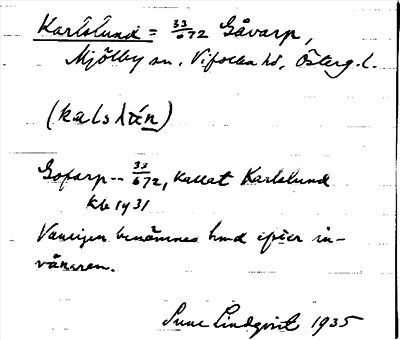 Karlslund = 33/672 Gåvarp,
Mjölby sn, Vifolka hd, Österg.l.
(kalslún)
Gofarp -- 33/672, kallat Karlslund
Kb 1931
Vanligen benämnes hmd efter in-
vånaren.
Sune Lindqvist 1935